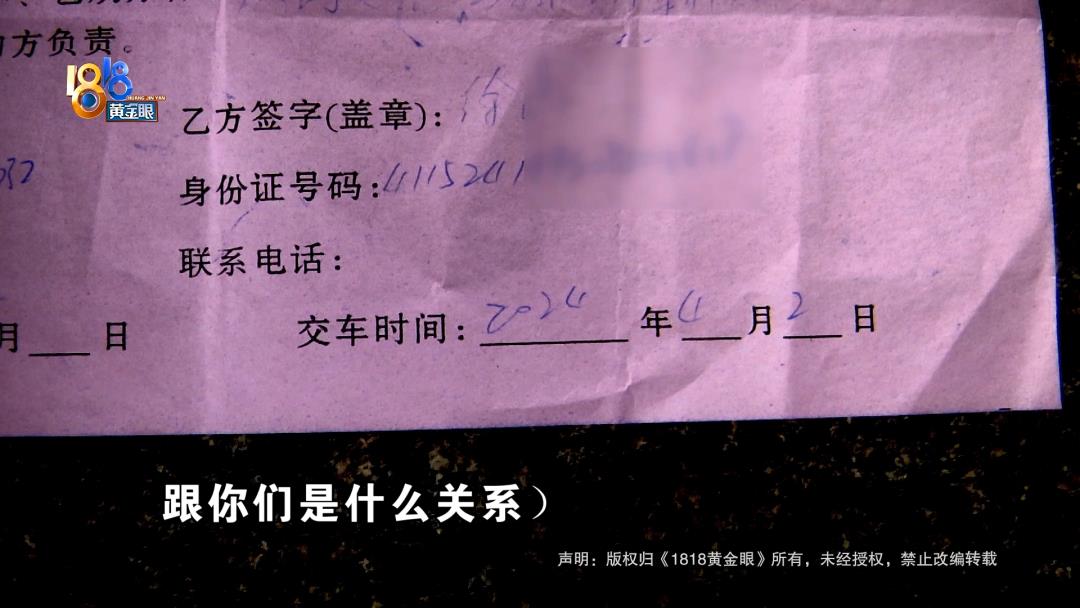 方负责。
1818
HUANG JIN YAN
黄金眼
乙方签字(盖章): 徐
身份证号码: 4115241
联系电话:
月 日
交车时间: 2024 年 4 月 2 日
跟你们是什么关系）
声明：版权归《1818黄金眼》所有，未经授权，禁止改编转载